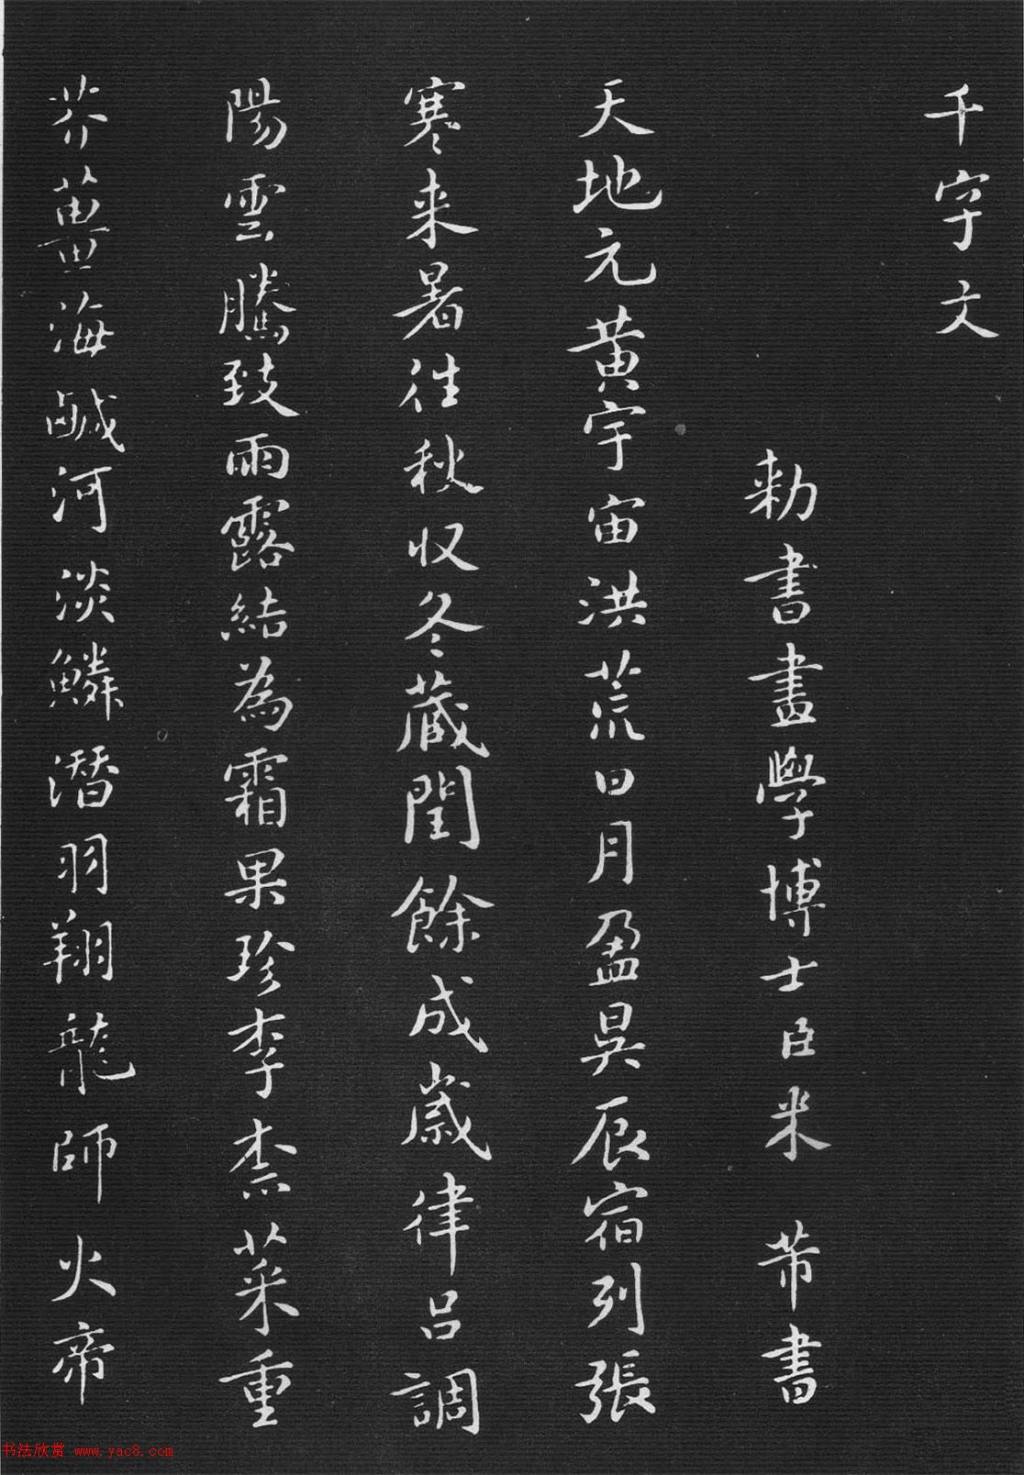 千字文
勅書畫學博士臣米芾書
天地元黄宇宙洪荒日月盈昃辰宿列張
寒来暑往秋収冬蔵閏餘成嵗律吕調
陽雲騰致雨露結為霜果珍李柰菜重
芥薑海鹹河淡鱗潛羽翔龍師火帝
书法欣赏 www.yac8.com